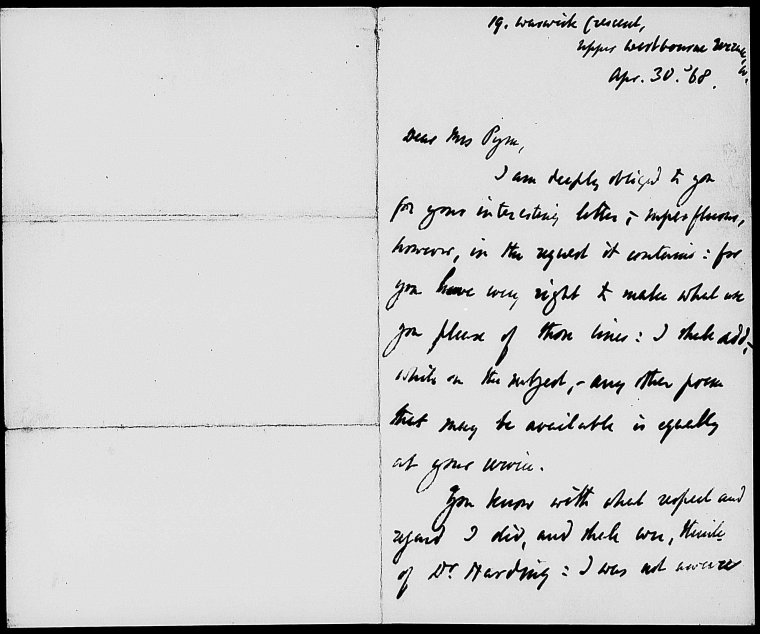 19. Warwick Crescent,
Upper Westbourne Terrace, W.
Apr. 30. '68.
Dear Mrs Pym,
I am deeply obliged to you
for your interesting letter,- superfluous,
however, in the request it contains: for
you have every right to make what use
you please of those lines: I shall add,-
while on the subject,- any other poem
that may be available is equally
at your service.
You know with what respect and
regard I did, and shall ever, think
of Dr. Harding: I was not aware